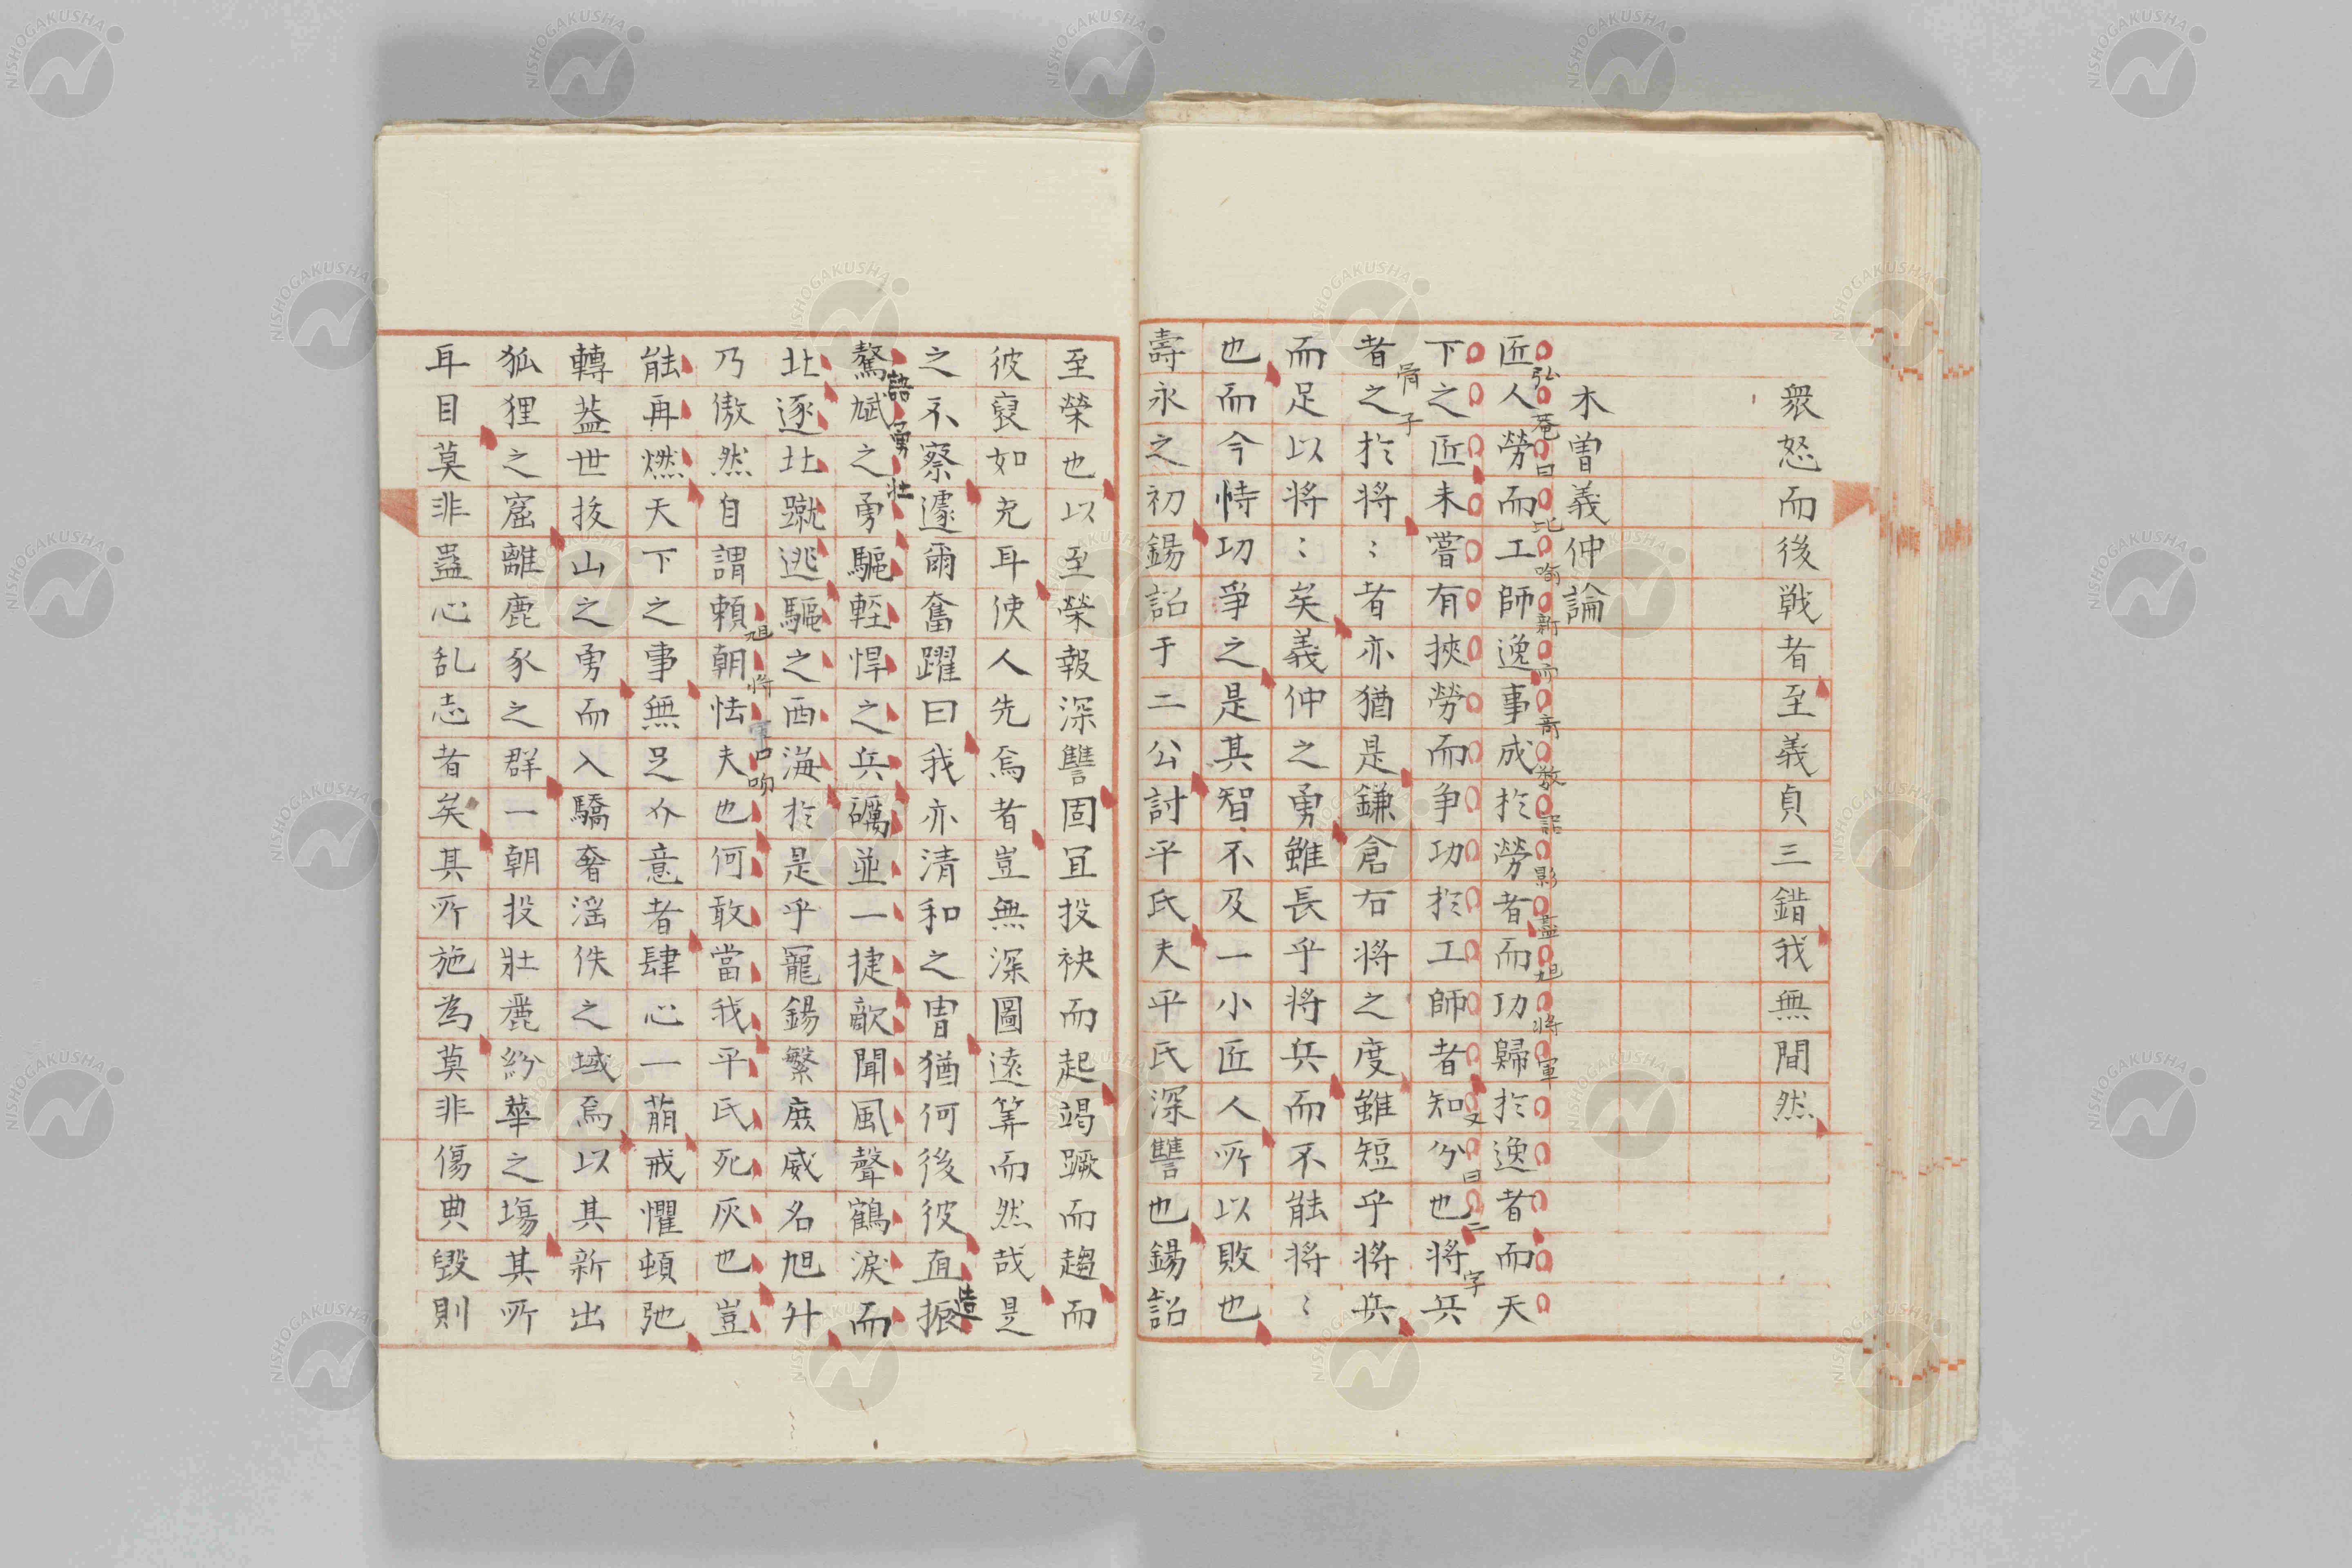 衆怒而後戦者至義貞三錯我無間然
木曽義仲論
匠人勞而工師逸事成於勞者而功歸於逸者而天
弘菴曰比喻新而奇敘語影蓋旭将軍
下之匠未嘗有挾勞而争功於工師者知分也将兵
又曰二字
骨子
者之於将〻者亦猶是鎌倉右将之度雖短乎将兵
而足以将〻矣義仲之勇雖長乎将兵而不能将〻
也而今恃功爭之是其智不及一小匠人所以敗也
壽永之初錫詔于二公討平氏夫平氏深讐也錫詔
至榮也以至榮報深讐固宜投袂而起竭蹶而趨而
彼裒如充耳使人先焉者豈無深圖遠筭而然哉是
之不察遽爾奮躍曰我亦清和之冑猶何後彼直振
造語勇壯
驁虣之勇驅輕悍之兵礪並一捷歊聞風聲鶴涙而
北逐北蹴逃驅之西海於是乎寵錫繁庶威名旭升
乃傲然自謂頼朝怯夫也何敢當我平氏死灰也豈
旭将軍口吻
能再燃天下之事無足介意者肆心一萠戒懼頓弛
轉葢世抜山之勇而入驕奢滛佚之域焉以其新出
狐狸之窟離鹿豕之群一朝投壯麗紛華之塲其所
耳目莫非蠱心乱志者矣其所施為莫非傷典毀則
NISHOGAKUSHA